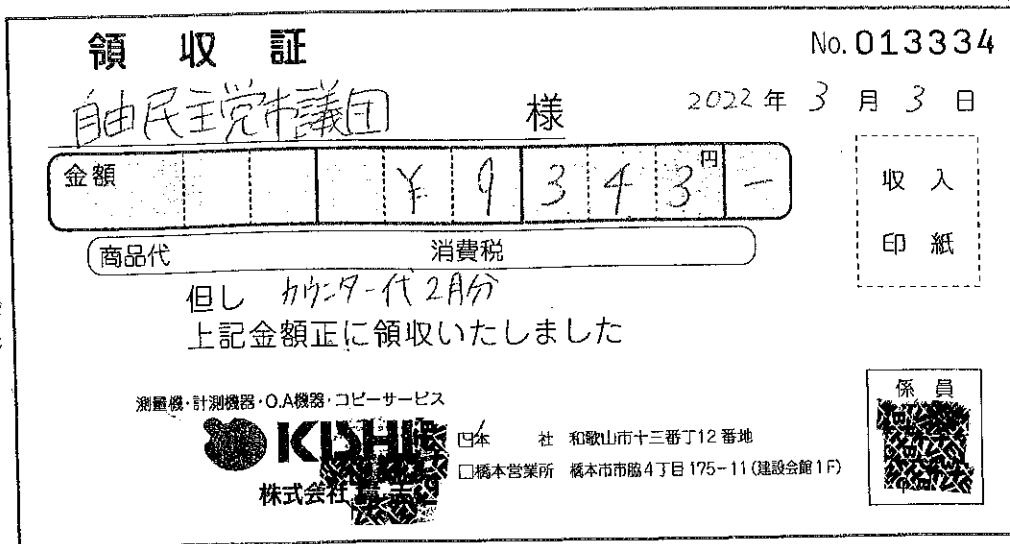 領収証
No. 013334
自由民主党市議団 様
2022年3月3日
金額 ¥9343円-
収入
印紙
商品代 消費税
但し カウンター代2月分
上記金額正に領収いたしました
測量機・計測機器・O.A機器・コピーサービス
株式会社
☑本社 和歌山市十三番丁12番地
□橋本営業所 橋本市市脇4丁目175-11(建設会館1F)
係員